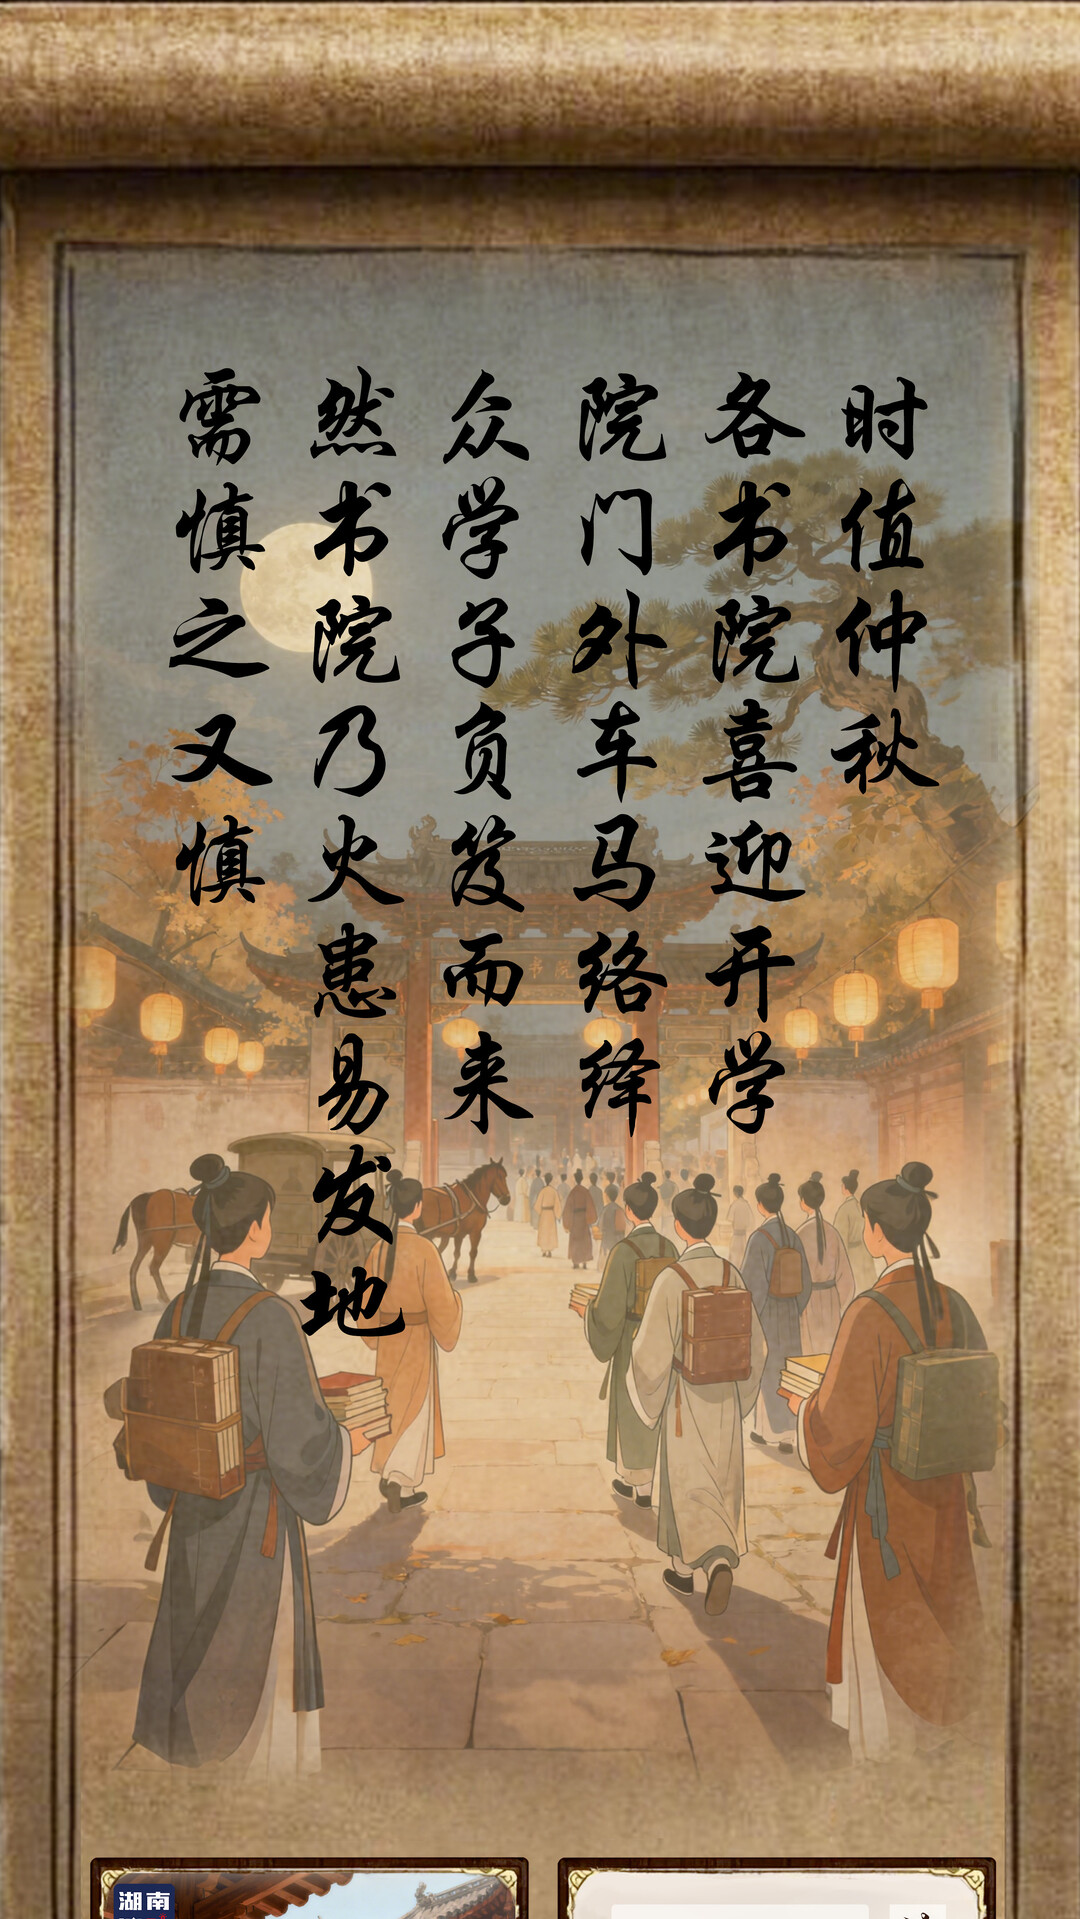 时值仲秋
各书院喜迎开学
院门外车马络绎
众学子负笈而来
然书院乃火患易发地
需慎之又慎
书院
湖南